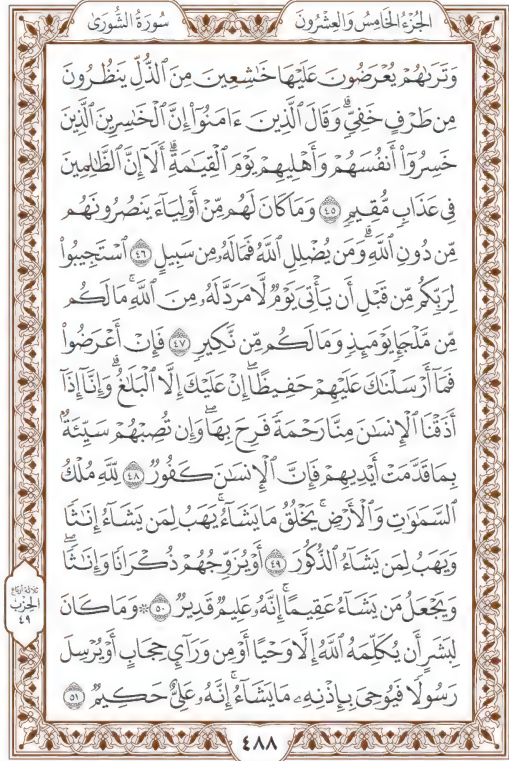 الجزء الخامس والعشرون
سورة الشورى
وَتَرَىٰهُمْ يُعْرَضُونَ عَلَيْهَا خَٰشِعِينَ مِنَ ٱلذُّلِّ يَنظُرُونَ
مِن طَرْفٍ خَفِيٍّۗ وَقَالَ ٱلَّذِينَ ءَامَنُوٓاْ إِنَّ ٱلْخَٰسِرِينَ ٱلَّذِينَ
خَسِرُوٓاْ أَنفُسَهُمْ وَأَهْلِيهِمْ يَوْمَ ٱلْقِيَٰمَةِۗ أَلَآ إِنَّ ٱلظَّٰلِمِينَ
فِى عَذَابٍ مُّقِيمٍ ٤٥ وَمَا كَانَ لَهُم مِّنْ أَوْلِيَآءَ يَنصُرُونَهُم
مِّن دُونِ ٱللَّهِۗ وَمَن يُضْلِلِ ٱللَّهُ فَمَا لَهُۥ مِن سَبِيلٍ ٤٦ ٱسْتَجِيبُواْ
لِرَبِّكُم مِّن قَبْلِ أَن يَأْتِىَ يَوْمٌ لَّا مَرَدَّ لَهُۥ مِنَ ٱللَّهِۚ مَا لَكُم
مِّن مَّلْجَإٍ يَوْمَئِذٍ وَمَا لَكُم مِّن نَّكِيرٍ ٤٧ فَإِنْ أَعْرَضُواْ
فَمَآ أَرْسَلْنَٰكَ عَلَيْهِمْ حَفِيظًاۖ إِنْ عَلَيْكَ إِلَّا ٱلْبَلَٰغُۗ وَإِنَّآ إِذَآ
أَذَقْنَا ٱلْإِنسَٰنَ مِنَّا رَحْمَةً فَرِحَ بِهَاۖ وَإِن تُصِبْهُمْ سَيِّئَةٌۢ
بِمَا قَدَّمَتْ أَيْدِيهِمْ فَإِنَّ ٱلْإِنسَٰنَ كَفُورٌ ٤٨ لِّلَّهِ مُلْكُ
ٱلسَّمَٰوَٰتِ وَٱلْأَرْضِۚ يَخْلُقُ مَا يَشَآءُۚ يَهَبُ لِمَن يَشَآءُ إِنَٰثًا
وَيَهَبُ لِمَن يَشَآءُ ٱلذُّكُورَ ٤٩ أَوْ يُزَوِّجُهُمْ ذُكْرَانًا وَإِنَٰثًاۖ
وَيَجْعَلُ مَن يَشَآءُ عَقِيمًاۚ إِنَّهُۥ عَلِيمٌ قَدِيرٌ ٥٠ ۞ وَمَا كَانَ
لِبَشَرٍ أَن يُكَلِّمَهُ ٱللَّهُ إِلَّا وَحْيًا أَوْ مِن وَرَآيِٕ حِجَابٍ أَوْ يُرْسِلَ
رَسُولًا فَيُوحِىَ بِإِذْنِهِۦ مَا يَشَآءُۚ إِنَّهُۥ عَلِىٌّ حَكِيمٌ ٥١
ثلاثة أرباع
الحزب
٤٩
٤٨٨